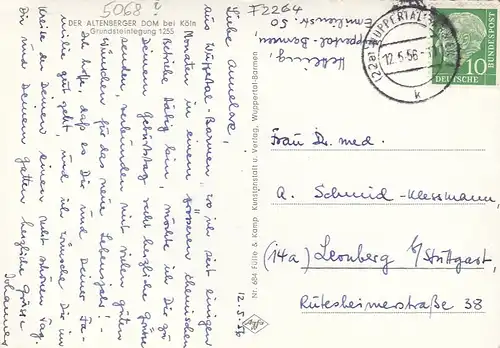 5068
F2264
DER ALTENBERGER DOM bei Köln
Grundsteinlegung 1255
Liebe Annelore,
aus Wuppertal-Barmen, wo ich seit einigen
Monaten in einem grösseren chemischen
Betriebe tätig bin, möchte ich Dir zu
Deinem Geburtstag recht herzliche Grüsse
senden, verbunden mit vielen guten
Wünschen für das neue Lebensjahr!
Ich hoffe, daß es Dir und Deiner Fa-
milie gut geht und ich wünsche Dir im
Kreise der Deinen einen recht schönen Tag.
Dir und Deinem Gatten herzliche Grüsse
Johannes
12.5.56
Wuppertal-Barmen,
Emilienstr. 50
Nr. 694 Fülle & Kamp Kunstanstalt u. Verlag, Wuppertal-Barmen
(22a) WUPPERTAL
12.5.56
k
10
DEUTSCHE BUNDESPOST
Frau Dr. med.
A. Schmid-Klessmann,
(14a) Leonberg b/Stuttgart,
Rutesheimerstraße 38